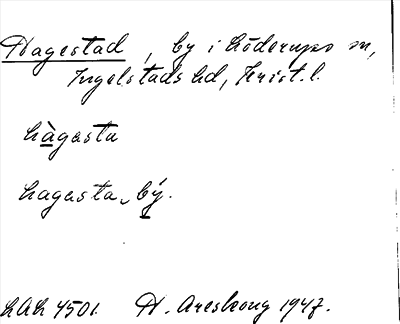 Hagestad, by i Löderups sn,
Ingelstads hd, Krist. l.
hàgasta
hagasta by̌.
LAL 4501. H. Areskoug 1947.